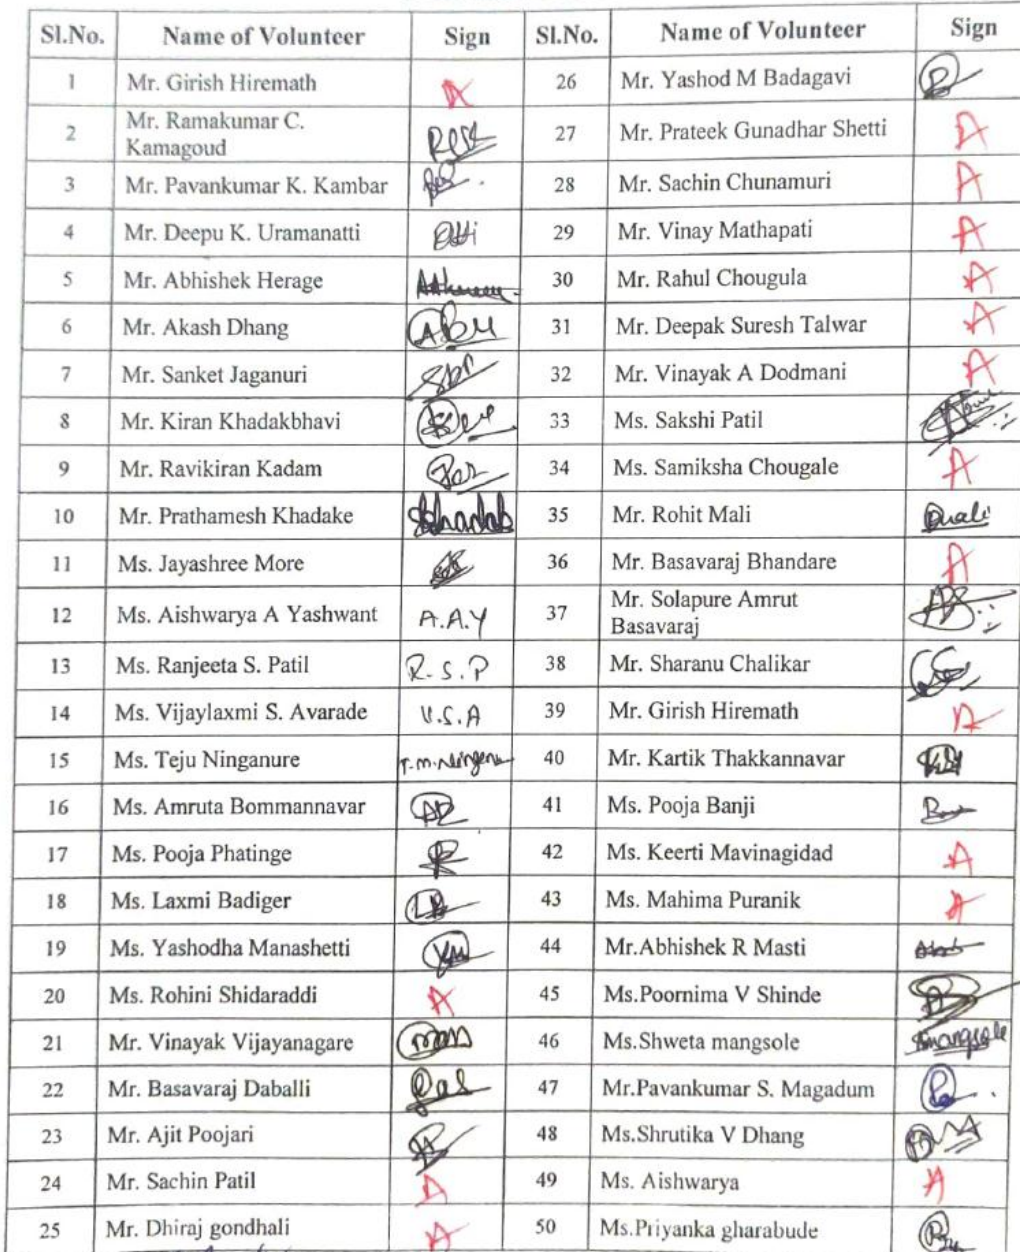 Sl.No. Name of Volunteer Sign Sl.No. Name of Volunteer Sign
1 Mr. Girish Hiremath A 26 Mr. Yashod M Badagavi
2 Mr. Ramakumar C. Kamagoud 27 Mr. Prateek Gunadhar Shetti A
3 Mr. Pavankumar K. Kambar 28 Mr. Sachin Chunamuri A
4 Mr. Deepu K. Uramanatti 29 Mr. Vinay Mathapati A
5 Mr. Abhishek Herage 30 Mr. Rahul Chougula A
6 Mr. Akash Dhang 31 Mr. Deepak Suresh Talwar A
7 Mr. Sanket Jaganuri 32 Mr. Vinayak A Dodmani A
8 Mr. Kiran Khadakbhavi 33 Ms. Sakshi Patil
9 Mr. Ravikiran Kadam 34 Ms. Samiksha Chougale A
10 Mr. Prathamesh Khadake 35 Mr. Rohit Mali
11 Ms. Jayashree More 36 Mr. Basavaraj Bhandare A
12 Ms. Aishwarya A Yashwant A.A.Y 37 Mr. Solapure Amrut Basavaraj
13 Ms. Ranjeeta S. Patil R.S.P 38 Mr. Sharanu Chalikar
14 Ms. Vijaylaxmi S. Avarade V.S.A 39 Mr. Girish Hiremath A
15 Ms. Teju Ninganure 40 Mr. Kartik Thakkannavar
16 Ms. Amruta Bommannavar 41 Ms. Pooja Banji
17 Ms. Pooja Phatinge 42 Ms. Keerti Mavinagidad A
18 Ms. Laxmi Badiger 43 Ms. Mahima Puranik A
19 Ms. Yashodha Manashetti 44 Mr.Abhishek R Masti
20 Ms. Rohini Shidaraddi A 45 Ms.Poornima V Shinde
21 Mr. Vinayak Vijayanagare 46 Ms.Shweta mangsole
22 Mr. Basavaraj Daballi 47 Mr.Pavankumar S. Magadum
23 Mr. Ajit Poojari 48 Ms.Shrutika V Dhang
24 Mr. Sachin Patil A 49 Ms. Aishwarya A
25 Mr. Dhiraj gondhali A 50 Ms.Priyanka gharabude